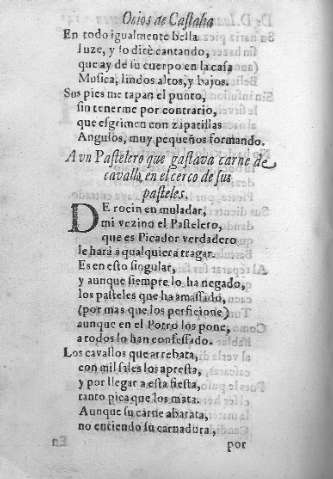 Ocios de Castalia
En todo igualmente bella
luze, y lo dirè cantando,
que ay de su cuerpo en la casa
Musica, lindos altos, y bajos.
Sus pies me tapan el punto,
sin tenerme por contrario,
que esgrimen con zapatillas
Angulos, muy pequeños formando.
A vn Pastelero que gastava carne de
cavallo, en el cerco de sus
pasteles.
DE rocin en muladar,
mi vezino el Pastelero,
que es Picador verdadero
le harà a qualquiera tragar.
Es en esto singular,
y aunque siempre lo ha negado,
los pasteles que ha amassado,
(por mas que los perficione)
aunque en el Potro los pone,
a todos lo han confessado.
Los cavallos que arrebata,
con mil sales los apresta,
y por llegar a esta fiesta,
tanto pica que los mata.
Aunque su carne abarata,
no entiendo su carnadura,
por